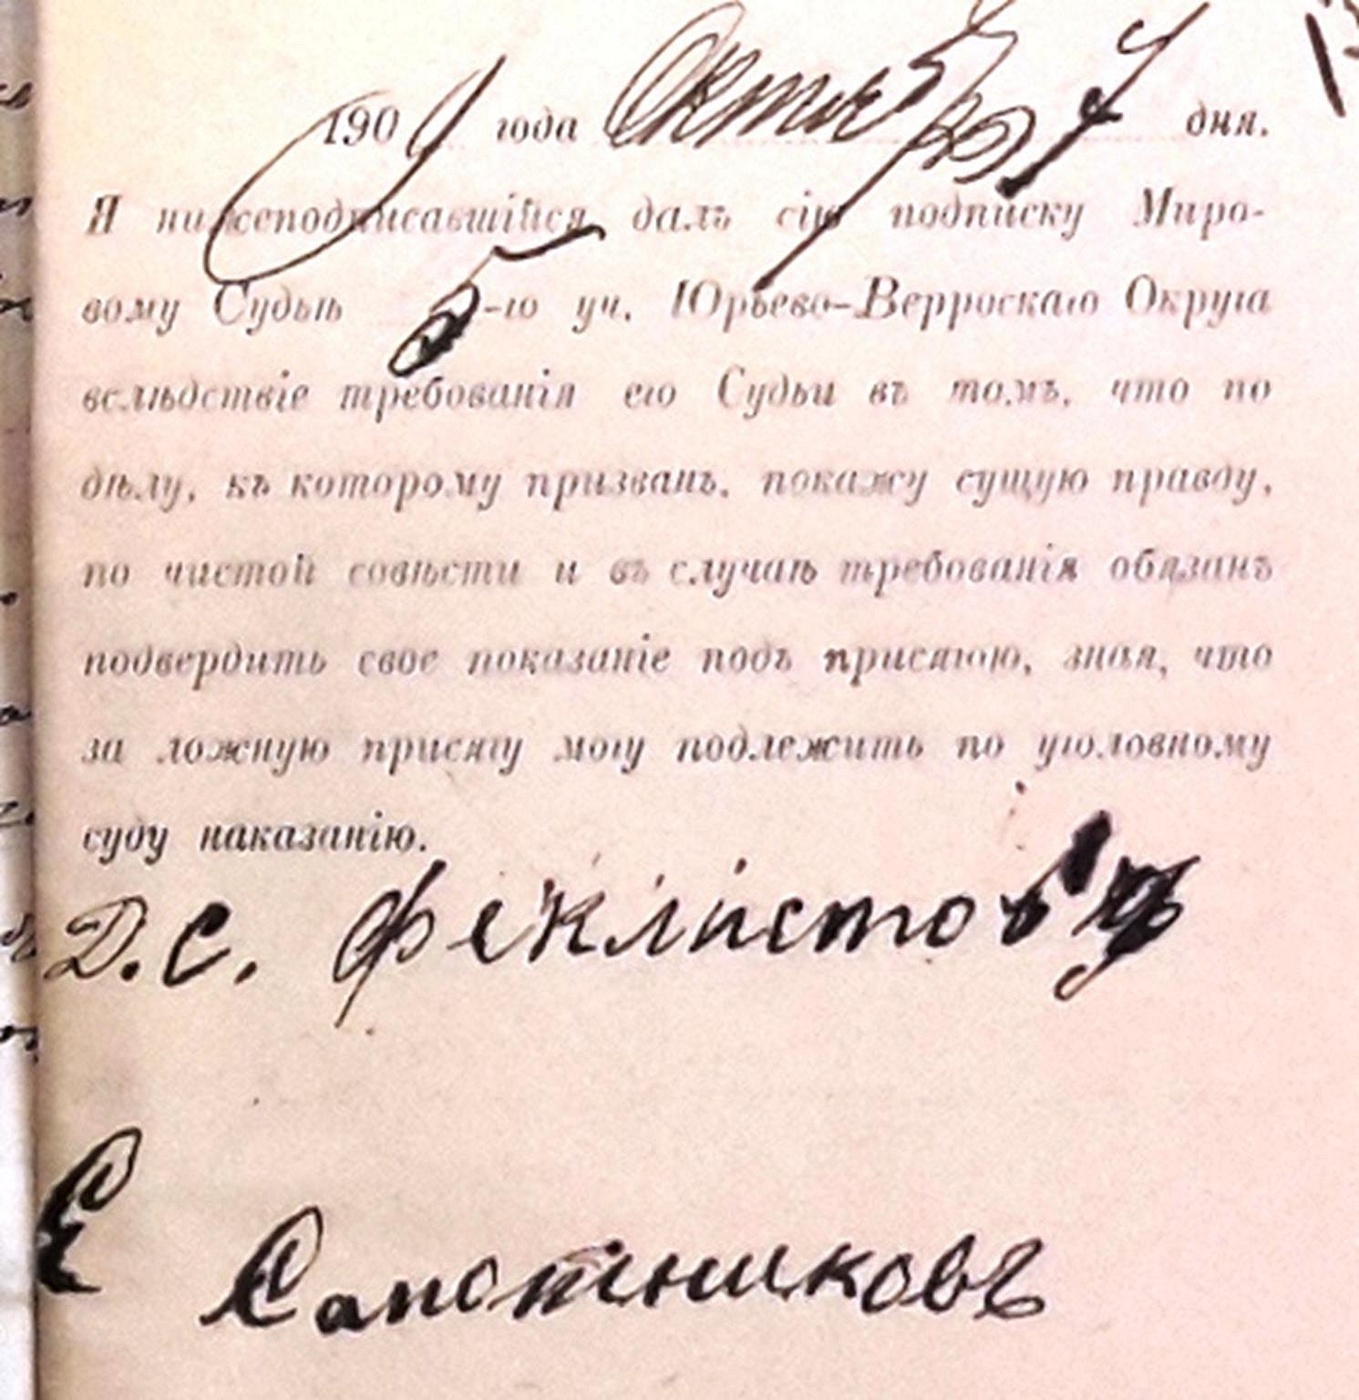 1909 года Октября 7 дня.
Я нижеподписавшійся далъ сію подписку Миро-
вому Судьѣ 5-го уч. Юрьево-Верроскаго Округа
вслѣдствіе требованія его Судьи въ томъ, что по
дѣлу, къ которому призванъ, покажу сущую правду,
по чистой совѣсти и въ случаѣ требованія обязанъ
подвердить свое показаніе подъ присягою, зная, что
за ложную присягу могу подлежить по уголовному
суду наказанію.
Д. С. Феклистовъ
Е Сапотниковъ